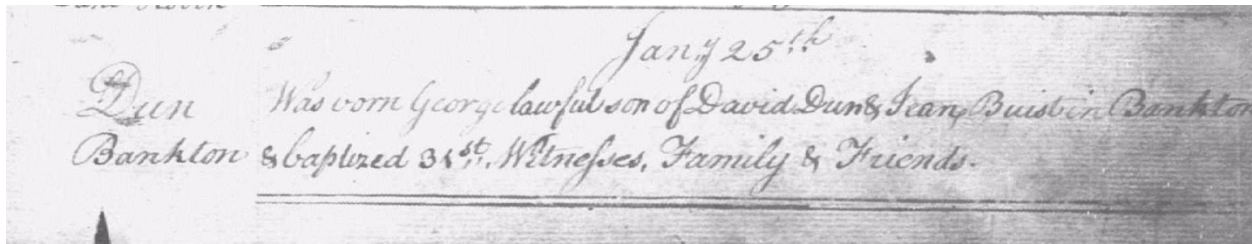 Jany 25th
Dun Was born George lawful son of David Dun & Jean Buist in Bankton
Bankton & baptized 31st. Witnesses, Family & Friends.